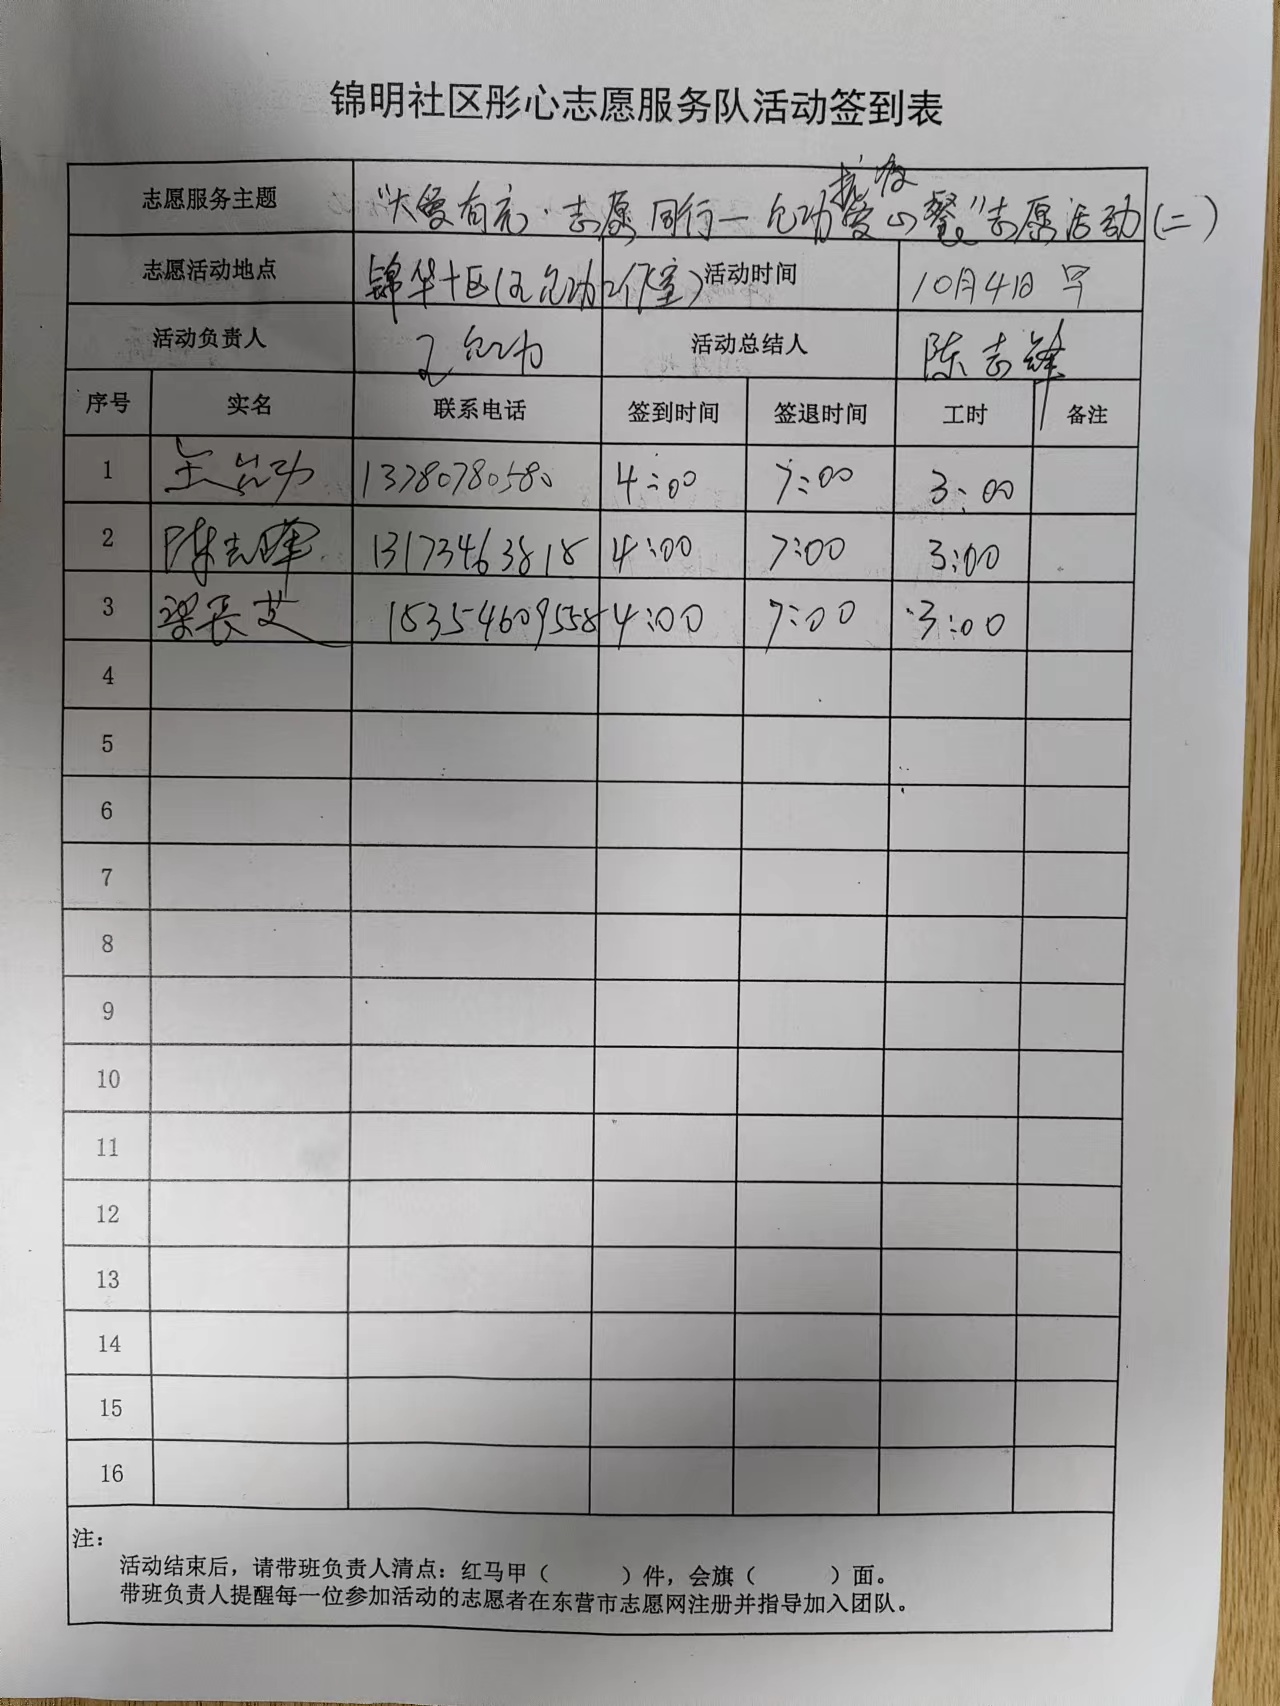 锦明社区彤心志愿服务队活动签到表
志愿服务主题 "大爱有充·志愿同行一允功抗疫爱心餐"志愿活动(二)
志愿活动地点 锦华十区(王允功工作室) 活动时间 10月4日 早
活动负责人 王允功 活动总结人 陈志锋
序号 实名 联系电话 签到时间 签退时间 工时 备注
1 王允功 13780780580 4:00 7:00 3:00
2 陈志 13173463818 4:00 7:00 3:00
3 梁长芝 18354609558 4:00 7:00 3:00
4
5
6
7
8
9
10
11
12
13
14
15
16
注:
活动结束后，请带班负责人清点：红马甲（ ）件，会旗（ ）面。
带班负责人提醒每一位参加活动的志愿者在东营市志愿网注册并指导加入团队。